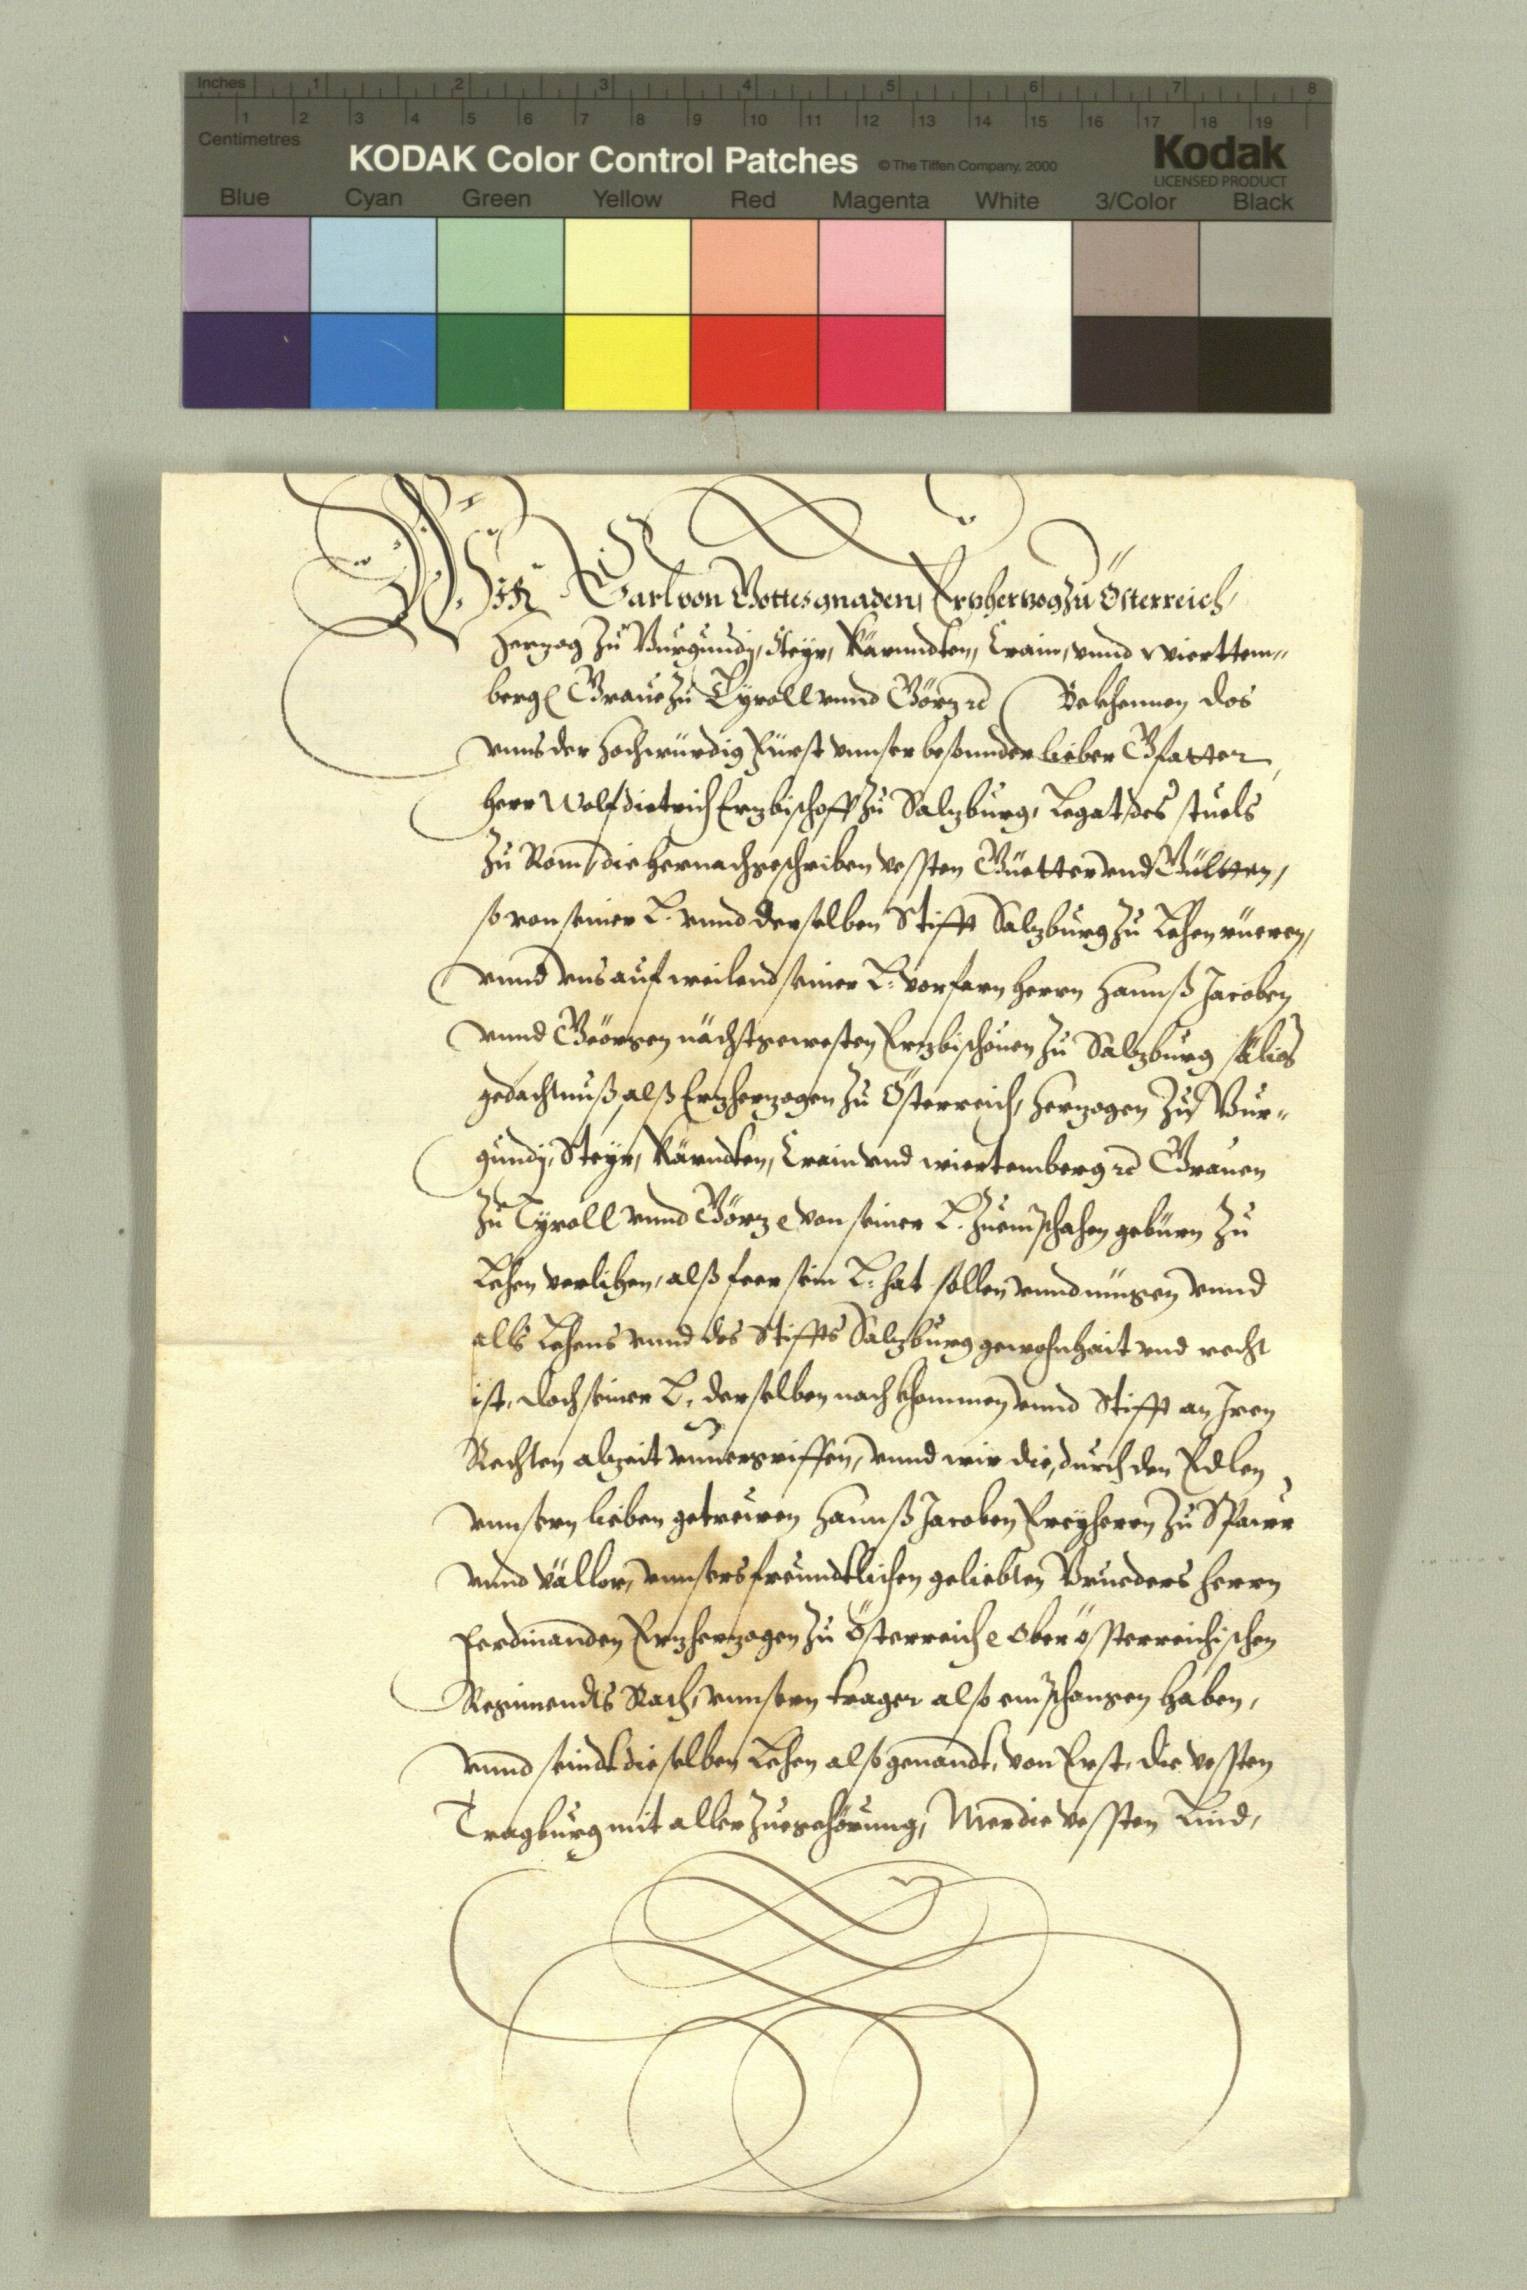 Inches 1 2 3 4 5 6 7 8
1 2 3 4 5 6 7 8 9 10 11 12 13 14 15 16 17 18 19
Centimetres
KODAK Color Control Patches © The Tiffen Company, 2000 Kodak
LICENSED PRODUCT
Blue Cyan Green Yellow Red Magenta White 3/Color Black
Wir Carl von Gottes gnaden, Ertzhertzog zu Österreich,
Hertzog zu Burgundj, Steyr, Kärnndten, Crain, vnnd Wierttem-
berg, Graue zu Tyroll vnnd Görz etc Bekhennen das
vnns der Hochwürdig Fürst vnnser besonnder lieber Gfatter
Herr Wolf Dietrich Erzbischoff zu Salzburg, Legat des stuels
zu Rom, die hernachgeschriben vessten Güetter vnd Gülten,
so von seiner L. vnnd derselben Stifft Salzburg zu Lehen rüeren,
vnnd vns auf weilend seiner L: vorfarn herrn Hannß Jacoben
vnnd Geörgen nächstgewesten Erzbischouen zu Salzburg sälig
gedachtnuß, alß Erzherzogen zu Österreich, Herzogen zu Bur-
gundj, Steyr, Kärndten, Crain vnd Wiertemberg etc Grauen
zu Tyroll vnnd Görz etc von seiner L. zu empfahen gebürn zu
Lehen verlihen, alß feer sein L: hat sollen vnnd mügen, vnnd
alls Lehens vnnd des Stiffts Salzburg gewohnhait vnd recht
ist, doch seiner L. derselben nachkhommen vnnd Stifft an Iren
Rechten alzeit vnuergriffen, vnnd wir die, durch den Edlen
vnnsern lieben getreuen Hannß Jacoben Freyherrn zu Spaur
vnnd Vallor, vnnsers freundtlichen geliebten Brueders Herrn
Ferdinanden Erzherzogen zu Österreich etc Oberösterreichischen
Regimendts Rath, vnnsern trager also empfangen haben,
vnnd seindt dieselben Lehen also genandt, von Erst, die vessten
Tragburg mit aller zuegehörung, Mer die vessten Lind,